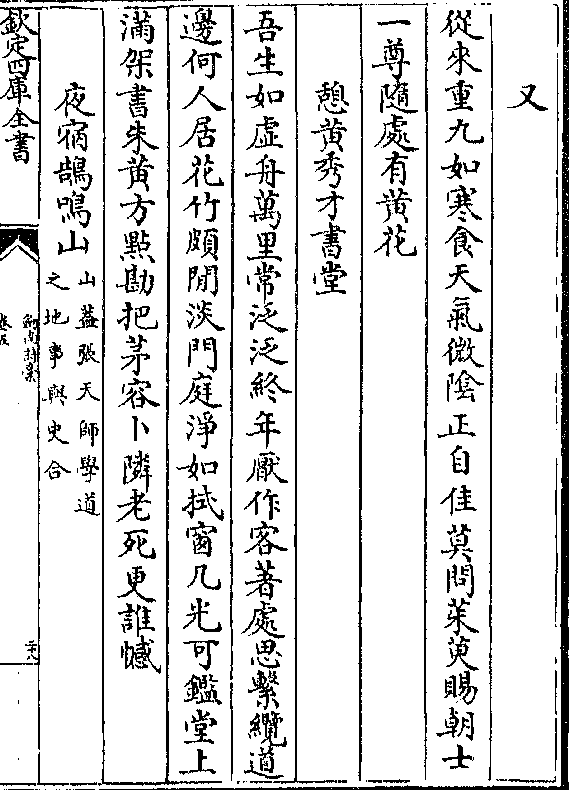 又
從來重九如寒食天氣微陰正自佳莫問茱萸賜朝士
一尊隨處有黄花
憩黄秀才書堂
吾生如虚舟萬里常泛泛終年厭作客著處思繫纜道
邊何人居花竹頗閒淡門庭淨如拭窗几光可鑑堂上
滿架書朱黄方點勘把茅容卜隣老死更誰憾
夜宿鵠鳴山
山葢張天師學道
之地事與史合
欽定四庫全書
劍南詩稾
卷五
二十八